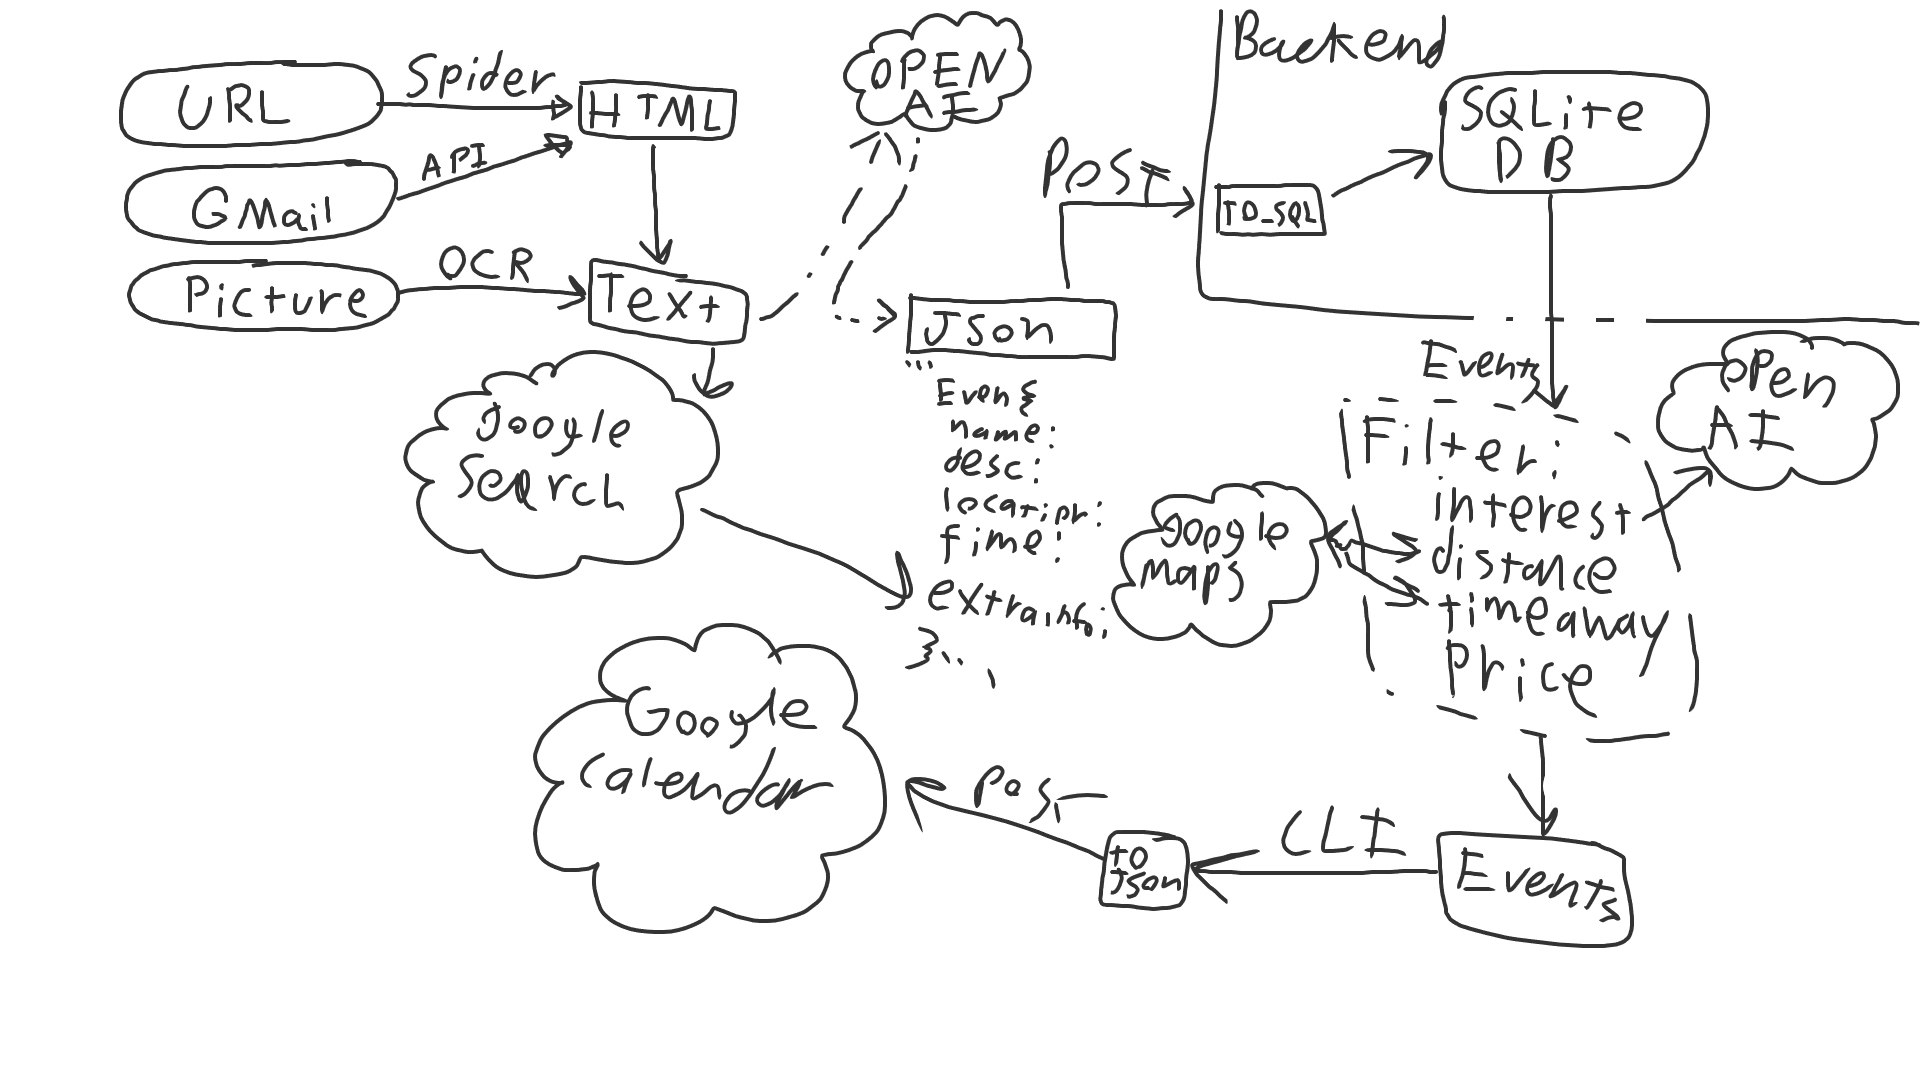 URL
Spider
HTML
GMail
API
Picture
OCR
Text
OPEN
AI
POST
Backend
TO_SQL
SQLite
DB
Json
Google
Search
Event
name:
desc:
location:
time:
extrainfo:
}...
Events
Filter:
interest
distance
timeaway
Price
Open
AI
Google
Maps
Events
CLI
TO
Json
Post
Google
Calendar